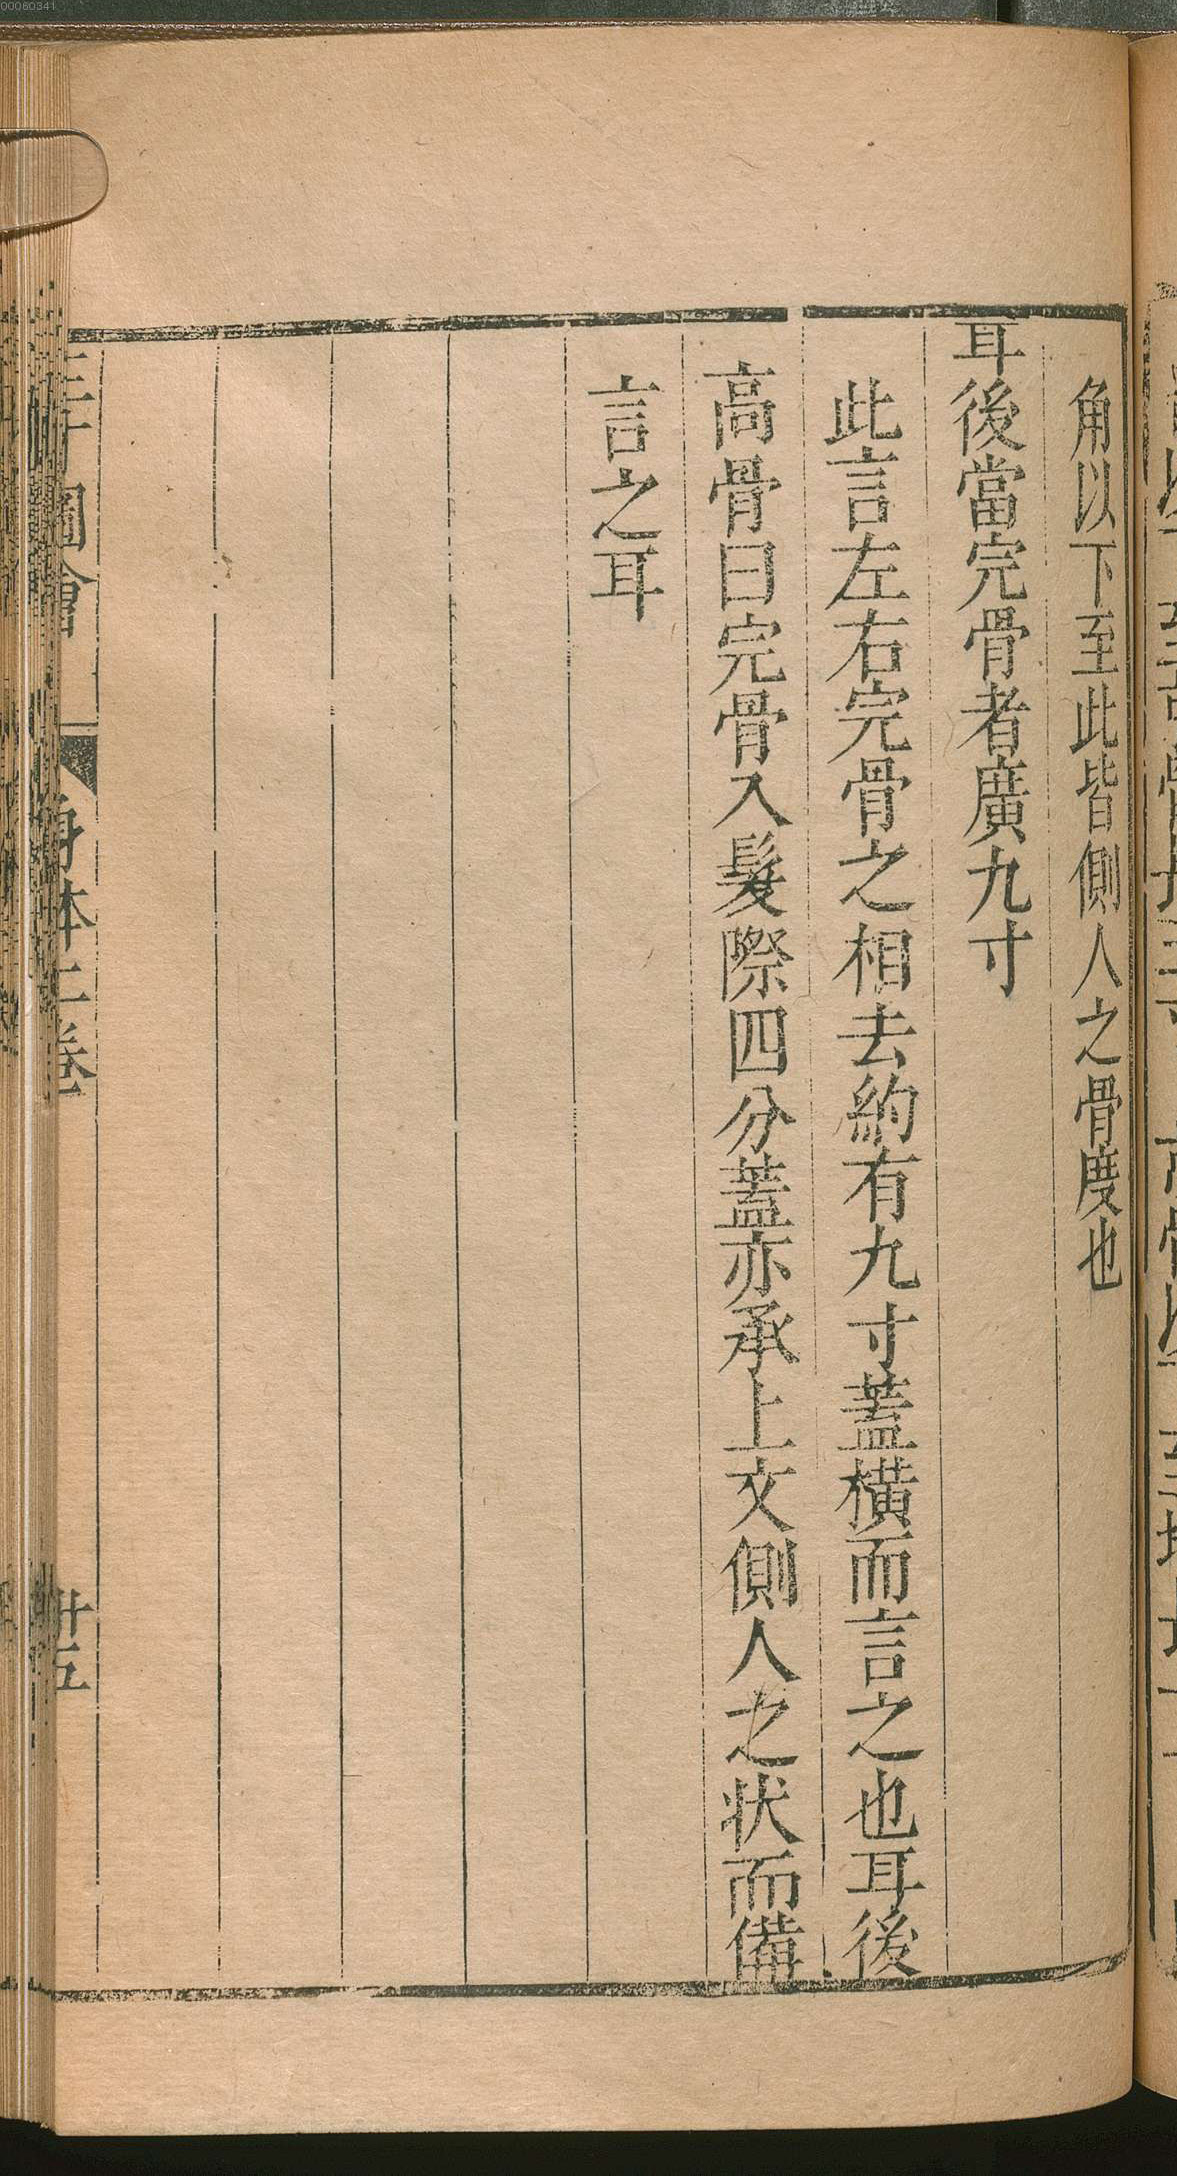 角以下至此皆側人之骨度也
耳後當完骨者廣九寸
此言左右完骨之相去約有九寸蓋橫而言之也耳後
高骨曰完骨入髮際四分蓋亦承上文側人之狀而備
言之耳
三才圖會
身体二卷
廿五
00060341